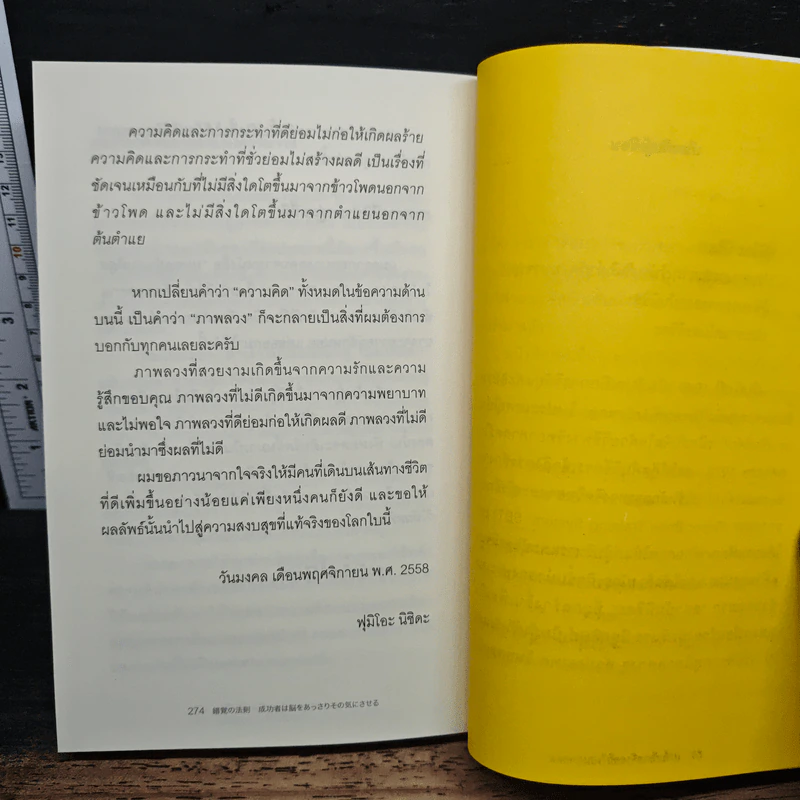 ความคิดและการกระทำที่ดีย่อมไม่ก่อให้เกิดผลร้าย
ความคิดและการกระทำที่ชั่วย่อมไม่สร้างผลดี เป็นเรื่องที่
ชัดเจนเหมือนกับที่ไม่มีสิ่งใดโตขึ้นมาจากข้าวโพดนอกจาก
ข้าวโพด และไม่มีสิ่งใดโตขึ้นมาจากตำแยนอกจาก
ต้นตำแย
หากเปลี่ยนคำว่า “ความคิด” ทั้งหมดในข้อความด้าน
บนนี้ เป็นคำว่า “ภาพลวง” ก็จะกลายเป็นสิ่งที่ผมต้องการ
บอกกับทุกคนเลยละครับ
ภาพลวงที่สวยงามเกิดขึ้นจากความรักและความ
รู้สึกขอบคุณ ภาพลวงที่ไม่ดีเกิดขึ้นมาจากความพยาบาท
และไม่พอใจ ภาพลวงที่ดีย่อมก่อให้เกิดผลดี ภาพลวงที่ไม่ดี
ย่อมนำมาซึ่งผลที่ไม่ดี
ผมขอภาวนาจากใจจริงให้มีคนที่เดินบนเส้นทางชีวิต
ที่ดีเพิ่มขึ้นอย่างน้อยแค่เพียงหนึ่งคนก็ยังดี และขอให้
ผลลัพธ์นั้นนำไปสู่ความสงบสุขที่แท้จริงของโลกใบนี้
วันมงคล เดือนพฤศจิกายน พ.ศ. 2558
ฟุมิโอะ นิชิดะ
274 錯覚の法則 成功者は脳をあっさりその気にさせる